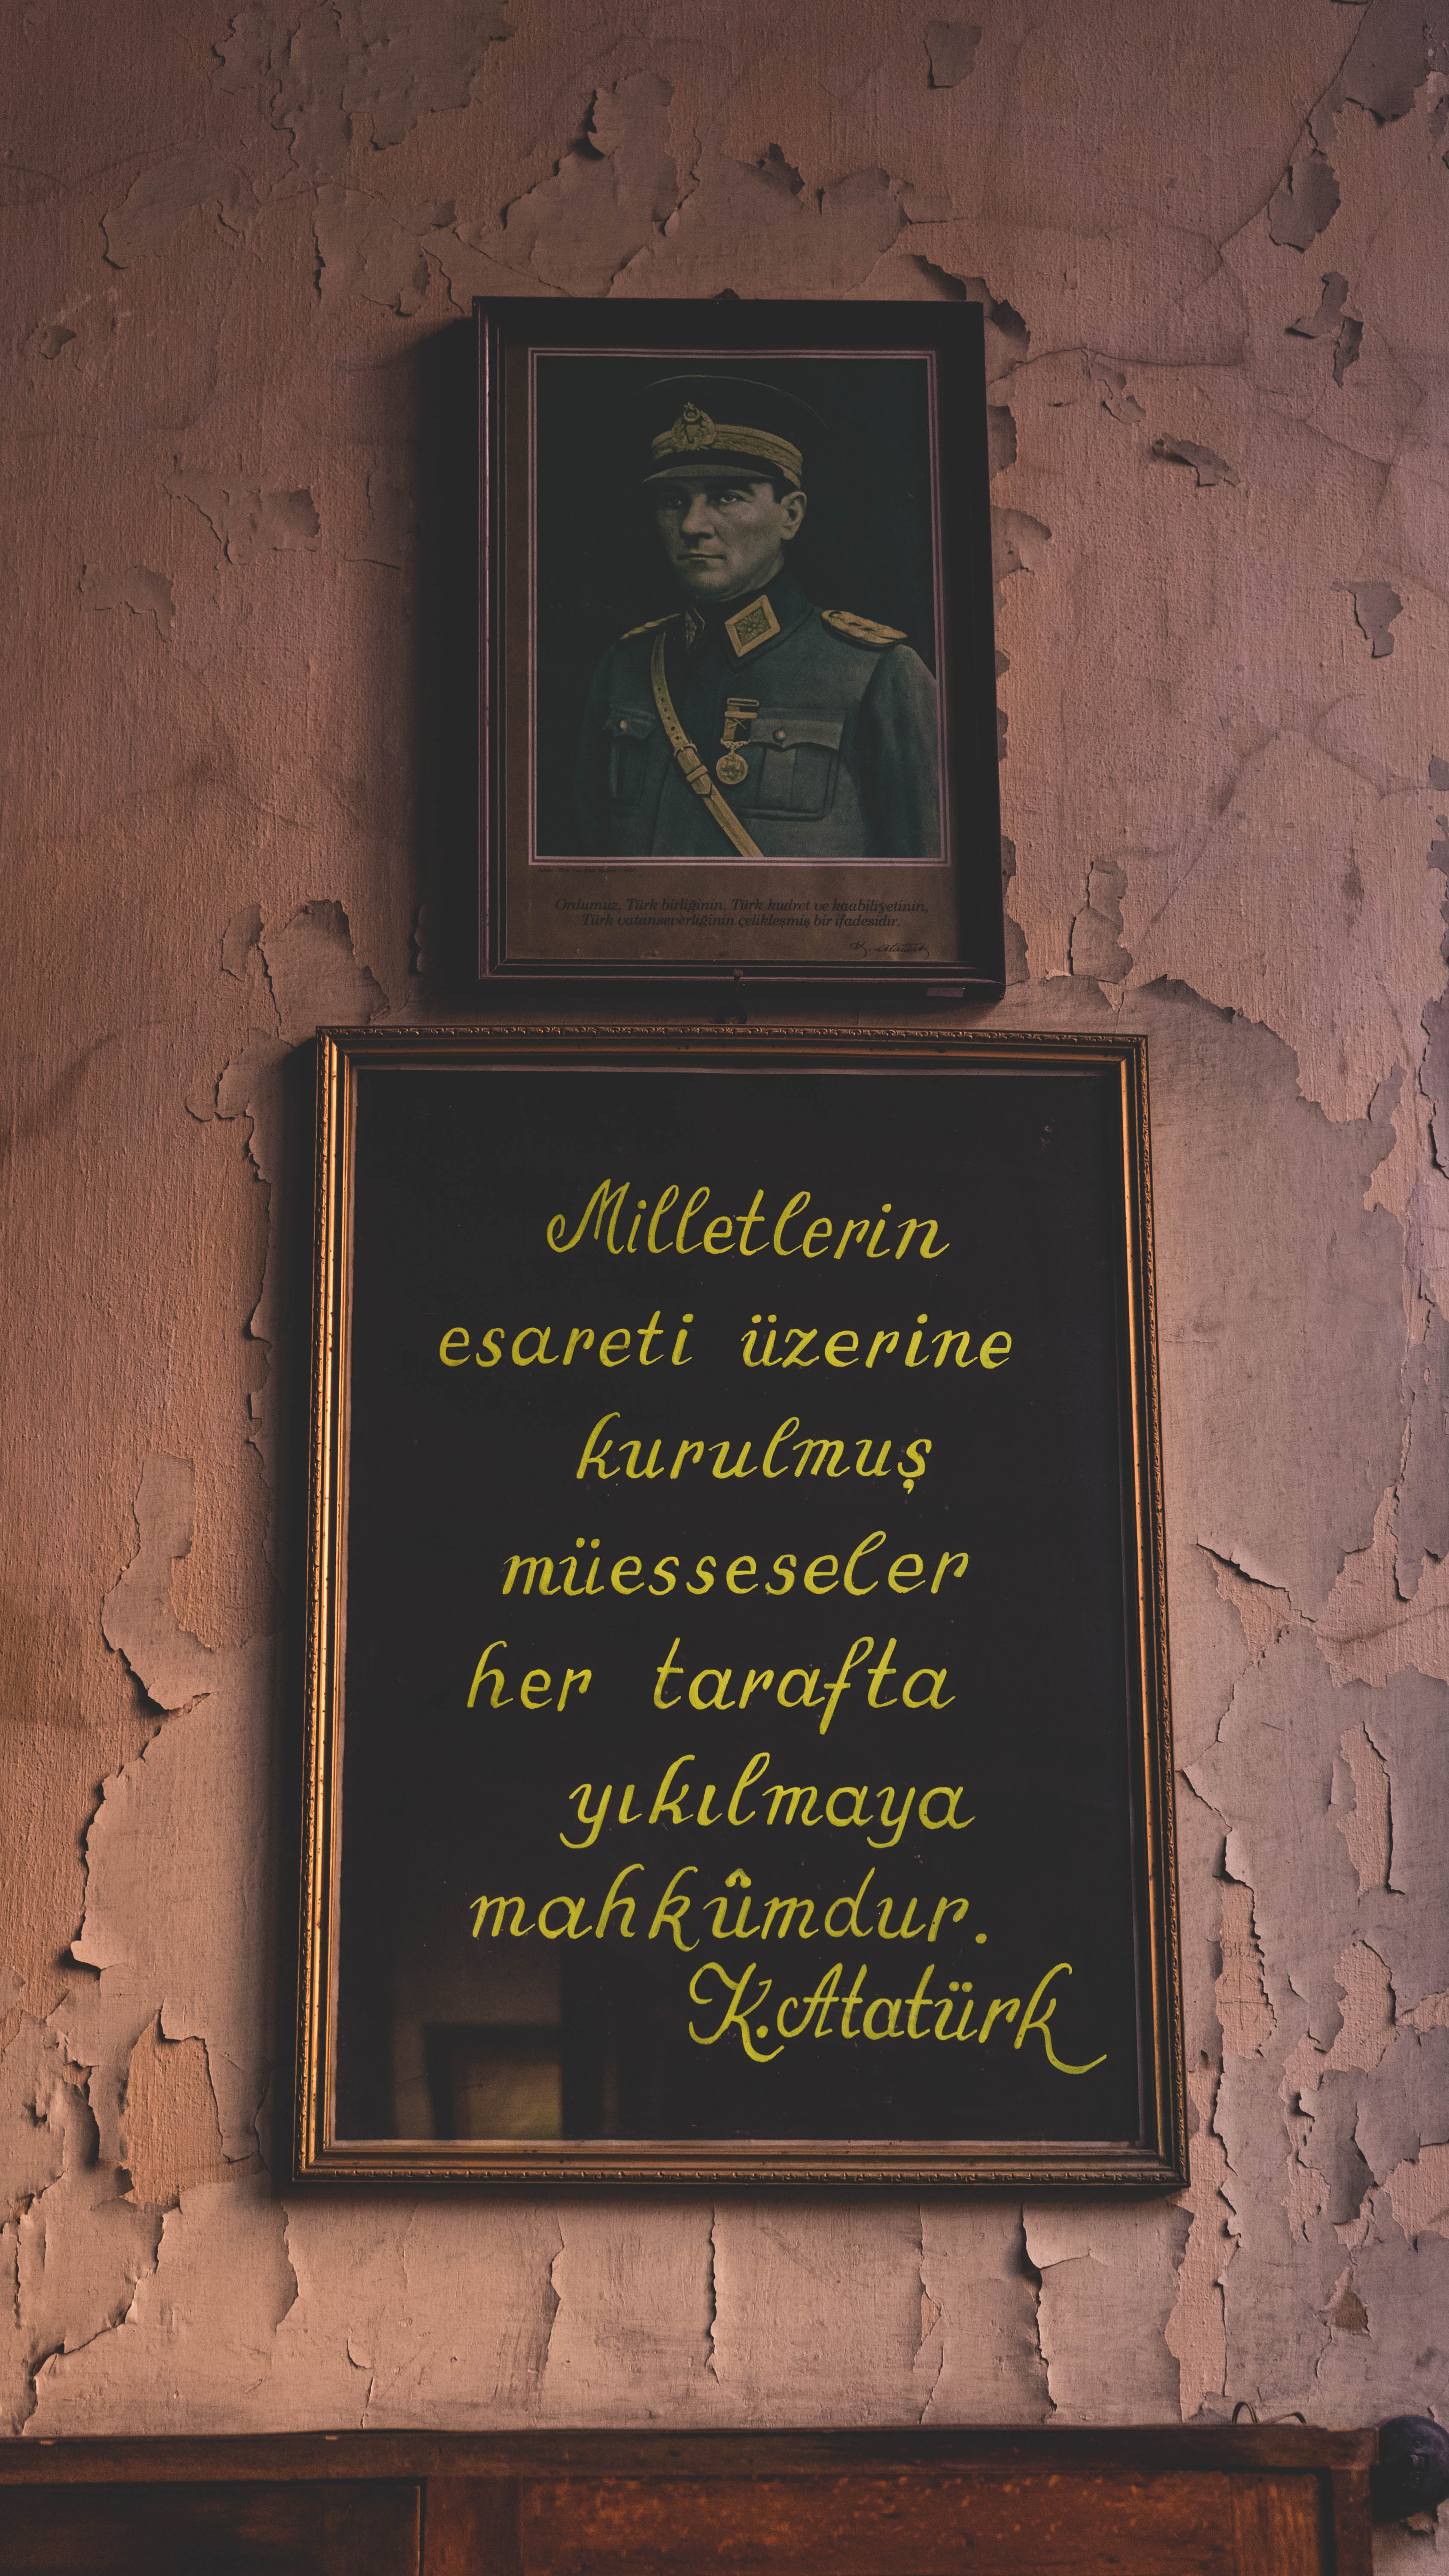 Ordumuz, Türk birliğinin, Türk kudret ve kaabiliyetinin,
Türk vatanseverliğinin çelikleşmiş bir ifadesidir.
K. Atatürk
Milletlerin
esareti üzerine
kurulmuş
müesseseler
her tarafta
yıkılmaya
mahkûmdur.
K.Atatürk